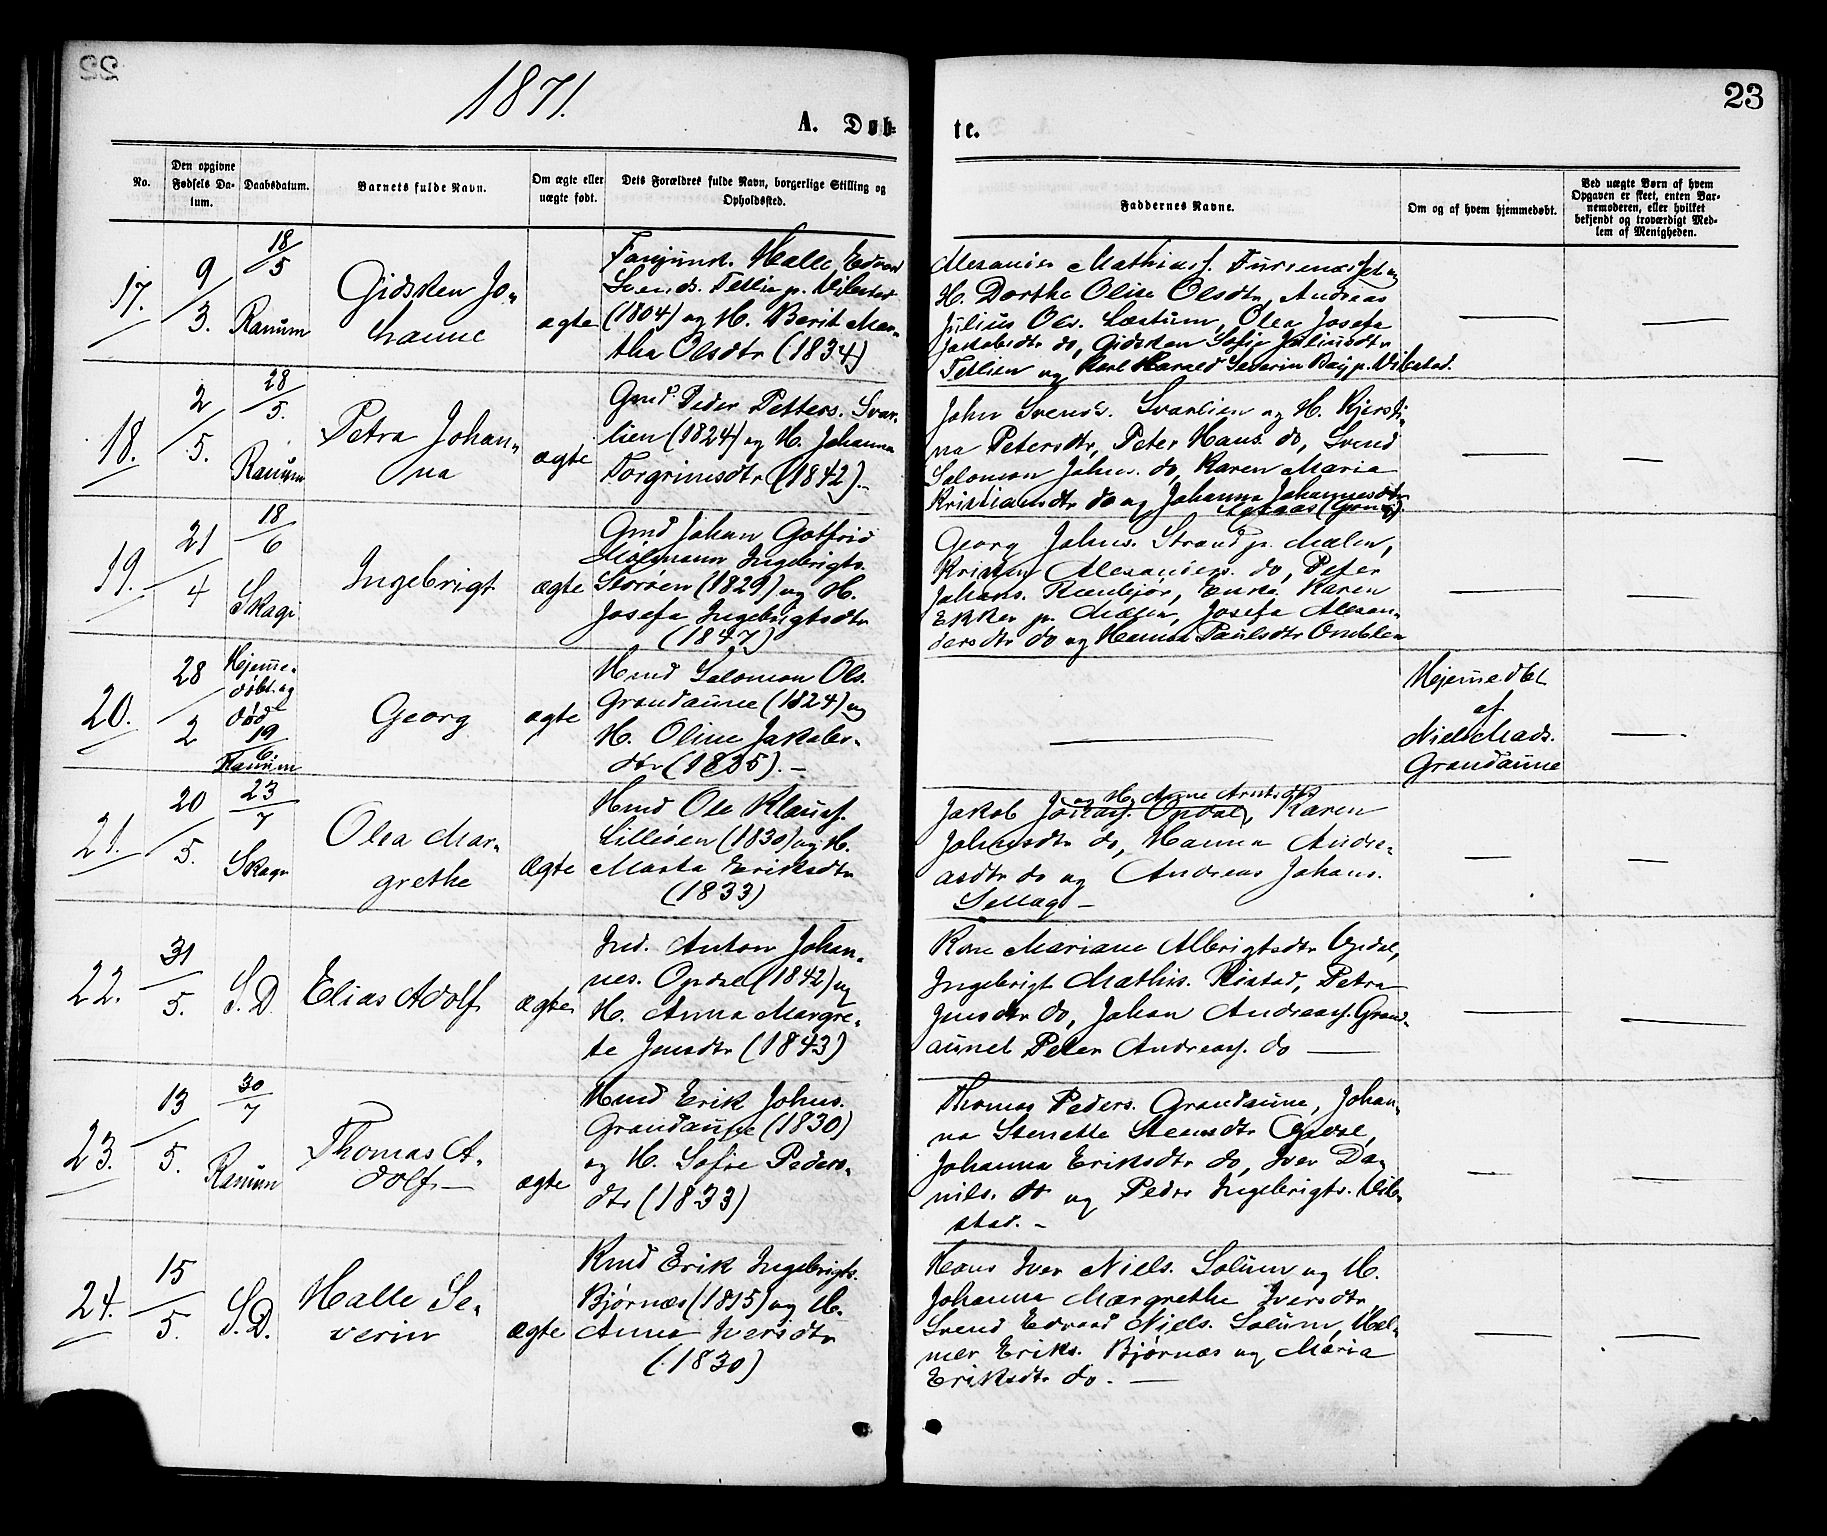 1871.
23
A. Døb-
te.
No.
Den opgivne
Fødsels Da-
tum.
Daabsdatum.
Barnets fulde Navn.
Om ægte eller
uægte født.
Dets Forældres fulde Navn, borgerlige Stilling og
Opholdssted.
Faddernes Navne.
Om og af hvem hjemmedøbt.
Ved uægte Børn af hvem
Opgaven er skeet, enten Bar-
nemoderen, eller hvilket
bekjendt og troværdigt Med-
lem af Menigheden.
17.
9/3.
18/5
Ranum
Gidsken Jo-
hanne
ægte
Halle Edvard
Svends. Tetlie p. Vibstad
(1804) og H. Berit Mar-
tha Olsdtr (1834)
Mathiass.
H. Dorthe Oline Olsdtr, Andreas
Julius Ols. Læstum, Olea Josefa
Jakobsdtr do, Gidsken Sofie Juliusdtr
Tetlien og Karl Harald Severin Bay p. Vibstad.
18.
2/5.
28/5.
Ranum
Petra Johan-
na
ægte
Gmd Peder Petters. Svar-
lien (1824) og H. Johanna
Torgrimsdtr (1842).-
John Svends. Svarlien og H. Kjersti-
na Petersdtr, Peter Hans. do, Svend
Salomon Johns. do, Karen Maria
Kristiansdtr do og Johanna Johannesdtr
19.
21/4
18/6
Skage
Ingebrigt
ægte
Gmd Johan Gotfrid
Ingebrigts.
Storøen (1829) og H.
Josefa Ingebrigtsdtr
(1847)
Georg Johns. Strand p. Mælen,
Kristen Alexanders. do, Peter
Johans. Enke Karen
Ekker p. Mælen, Josefa Alexan-
dersdtr do og Hanna Paulsdtr
20.
28/2
Hjemme-
døbt og
død
19/6
Ranum
Georg
ægte
Hmd Salomon Ols.
Grandaune (1824) og
H. Oline Jakobs-
dtr (1835).-
Hjemmedbt
af
Niels Mads.
Grandaune
21.
20/5.
23/7
Skage
Olea Mar-
grethe
Ægte
Hmd Ole Klaus.
Lilleøen (1830) og H.
Marta Eriksdtr
(1833)
og H. Anne Arntsdtr
Jakob Opdal, Karen
Johnsdtr do, Hanna Andre-
asdtr do og Andreas Johans.
Sellæg -
22.
31/5.
S.D.
Elias Adolf
ægte
Ind. Anton Johan-
nes. Opdal (1842) og
H. Anna Margre-
te Jensdtr (1843)
Kone Mariane Albrigtsdtr Opdal,
Ingebrigt Mathis. Ristad, Petra
Jensdtr do, Johan Andreass. Grand-
aunet Peter Andreass. do
23.
13/5.
30/7
Ranum
Thomas A-
dolf.
ægte
Hmd Erik Johns.
Grandaune (1830)
og H. Sofie Peders-
dtr (1833)
Thomas Peders. Grandaune, Johan-
na Stenette Steensdtr Opdal,
Johanna Eriksdtr do, Iver Da-
niels. do og Peder Ingebrigts. Vib-
stad. -
24.
15/5.
S.D.
Halle Se-
verin
ægte
Kmd Erik Ingebrigts.
Bjørnæs (1815) og H.
Anna Iversdtr
(1830)
Hans Iver Niels. Solum og H.
Johanna Margrethe Iversdtr
Svend Edvard Niels. Solum, Hal-
mer Eriks. Bjørnæs og Maria
Eriksdtr do. -